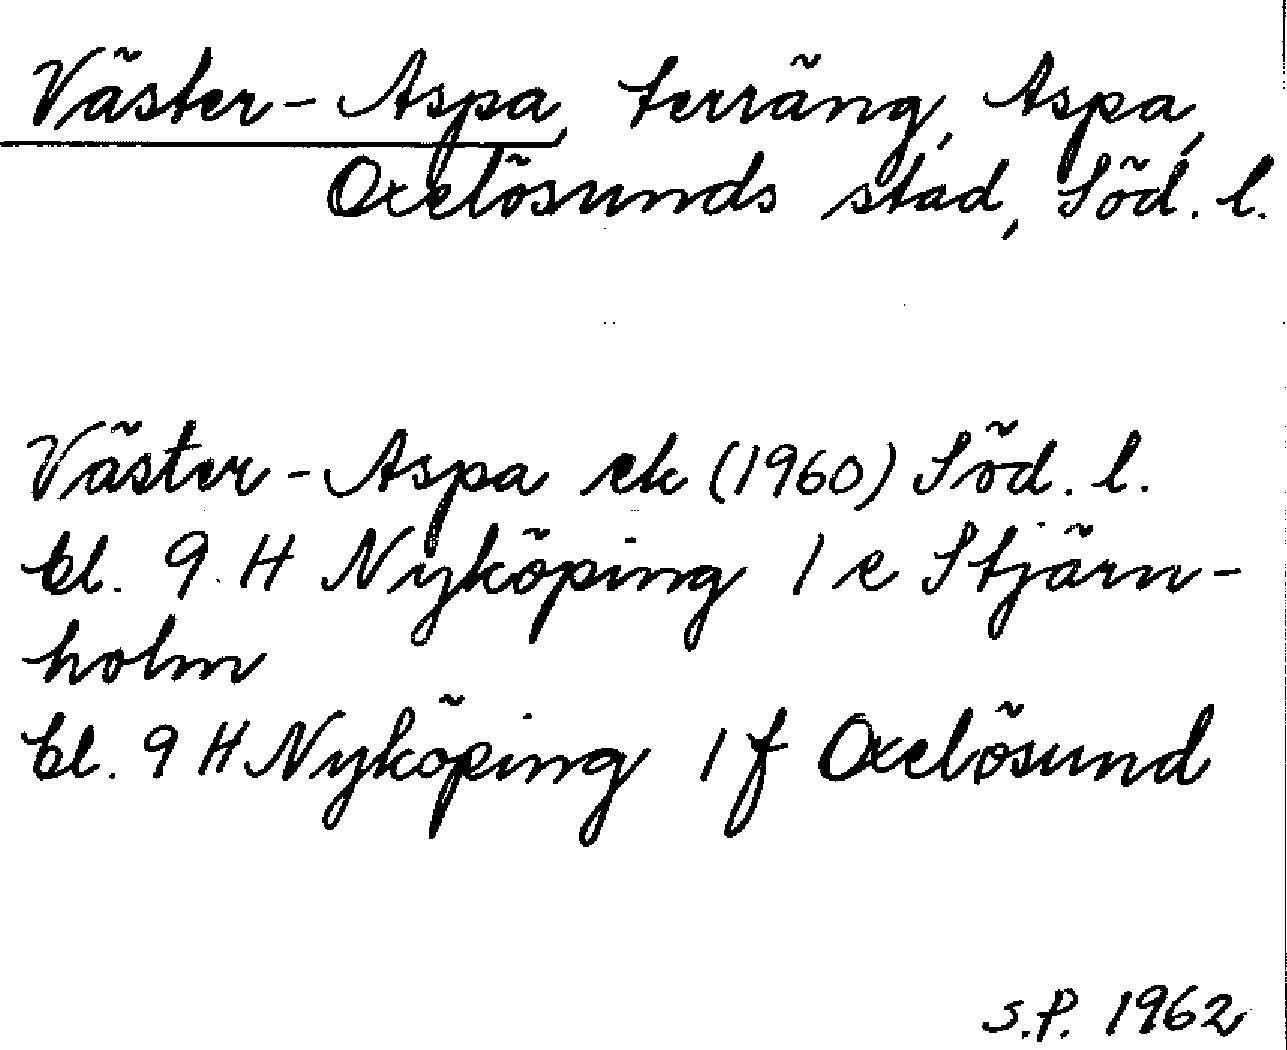 Väster-Aspa, terräng, Aspa,
Oxelösunds stad, Söd. l.
Väster-Aspa ek (1960) Söd. l.
bl. 9 H Nyköping 1 e Stjärn-
holm
bl. 9 H Nyköping 1 f Oxelösund
S.P. 1962